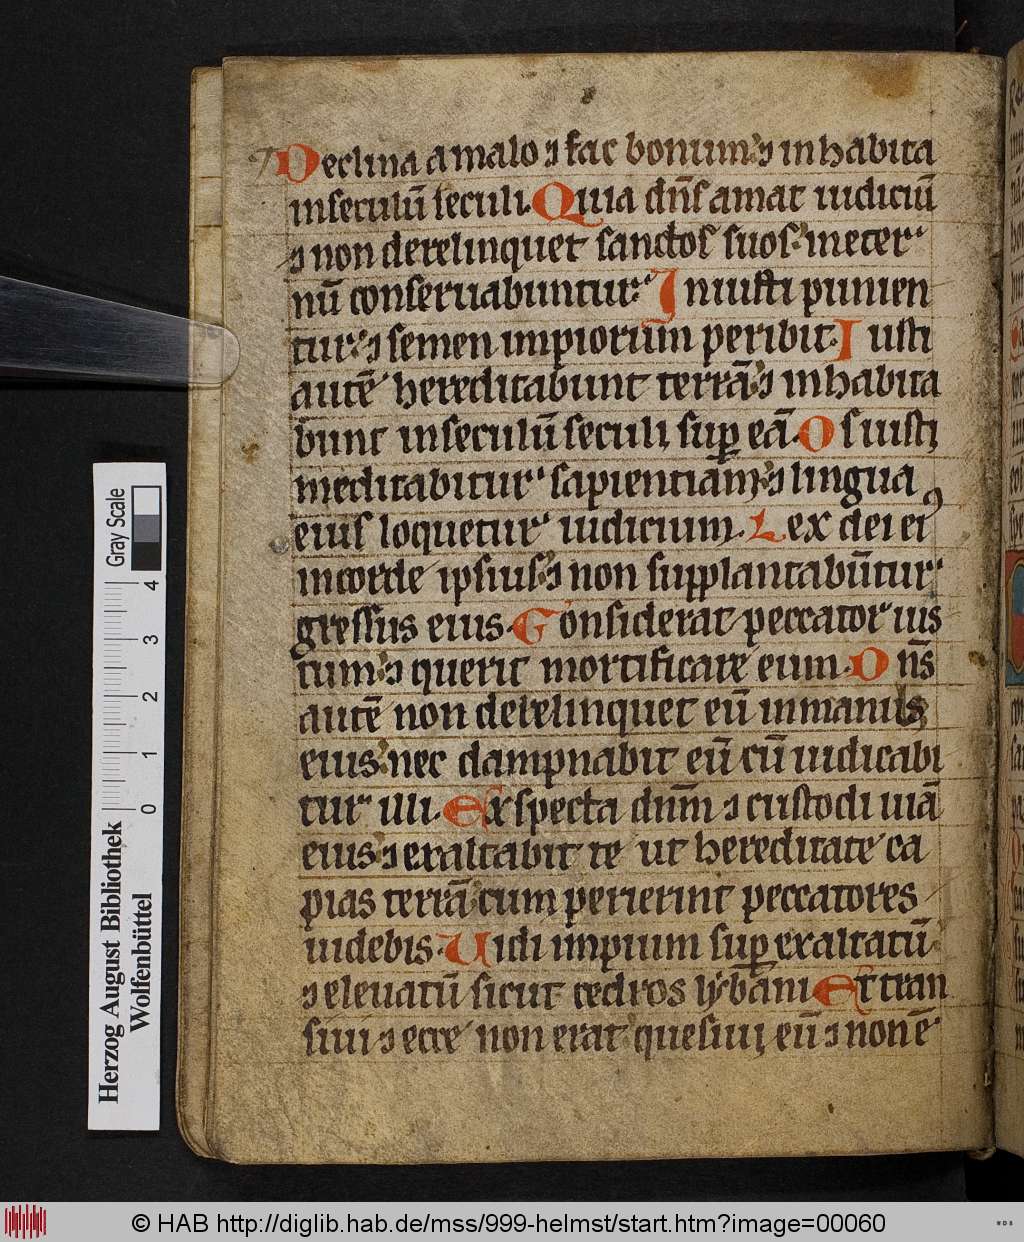 Declina a malo ⁊ fac bonum ⁊ inhabita
inseculū seculi. Quia dn̄s amat iudiciū
⁊ non derelinquet sanctos suos ineter
nū conseruabuntur. Iniusti punien
tur ⁊ semen impiorum peribit. Iusti
autē hereditabunt terrā ⁊ inhabita
bunt inseculū seculi sup eā. Os iusti
meditabitur sapientiam ⁊ lingua
eius loquetur iudicium. Lex dei eiꝰ
incorde ipsius ⁊ non supplantabūtur
gressus eius. Considerat peccator ius
tum ⁊ querit mortificare eum. Dn̄s
autē non derelinquet eū inmanus
eius nec dampnabit eū cū iudicabi
tur illi. Exspecta dnm̄ ⁊ custodi uiā
eius ⁊ exaltabit te ut hereditate ca
pias terrā cum perierint peccatores
uidebis. Uidi impium sup exaltatū
⁊ eleuatū sicut cedros lybani Et tran
siui ⁊ ecce non erat quesiui eū ⁊ non ē
Gray Scale
4
3
2
1
0
Herzog August Bibliothek
Wolfenbüttel
© HAB http://diglib.hab.de/mss/999-helmst/start.htm?image=00060